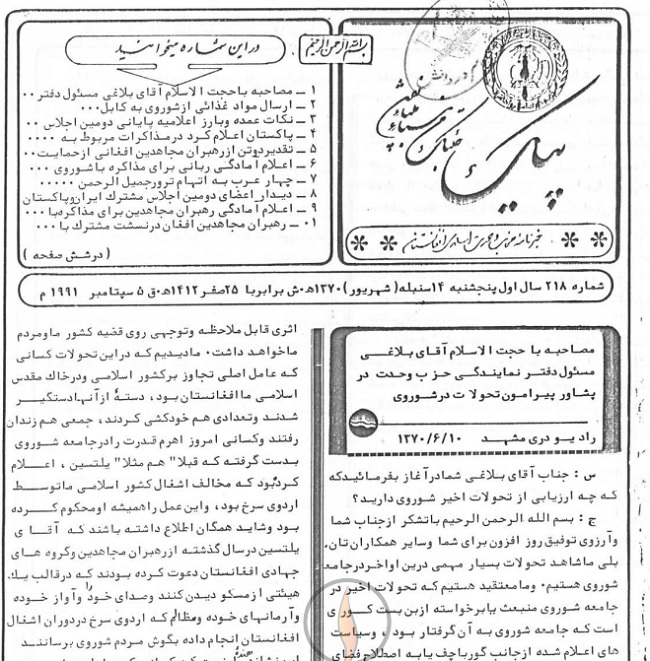 بسم الله الرحمن الرحیم
در این شماره میخوانید
۱ ــ مصاحبه با حجت الاسلام آقای بلاغی مسئول دفتر۰۰
۲ ــ ارسال مواد غذائی از شوروی به کابل۰۰۰
۳ ــ نکات عمده و بارز اعلامیه پایانی دومین اجلاس ۰۰
۴ ــ پاکستان اعلام کرد در مذاکرات مربوط به ۰۰۰۰
۵ ــ تقدیر دوتن از رهبران مجاهدین افغانی از حمایت۰۰
۶ ــ اعلام آمادگی ربانی برای مذاکره با شوروی ۰۰۰
۷ ــ چهار عرب به اتهام ترور جمیل الرحمن ۰۰۰۰۰
۸ ــ دیدار اعضای دومین اجلاس مشترک ایران وپاکستان
۹ ــ اعلام آمادگی رهبران مجاهدین برای مذاکره با ۰۰۰
۰۱ ــ رهبران مجاهدین افغان در نشست مشترک با ۰۰۰
( در شش صفحه )
پیک
خبرنامه حزب وحدت اسلامی افغانستان
شماره ۲۱۸ سال اول پنجشنبه ۱۴ سنبله( شهریور ) ۱۳۷۰ه۰ش برابر با ۲۵ صفر ۱۴۱۲ه۰ق ۵ سپتامبر ۱۹۹۱ م
مصاحبه با حجت الاسلام آقای بلاغی
مسئول دفتر نمایندگی حزب وحدت در
پشاور پیرامون تحولات در شوروی
رادیو دری مشهد ۱۳۷۰/۶/۱۰
س : جناب آقای بلاغی شما در آغاز بفرمائید که
که چه ارزیابی از تحولات اخیر شوروی دارید؟
ج : بسم الله الرحمن الرحیم با تشکر از جناب شما
و آرزوی توفیق روز افزون برای شما و سایر همکاران تان،
بلی ما شاهد تحولات بسیار مهمی درین اواخر در جامعه
شوروی هستیم۰ و ما معتقد هستیم که تحولات اخیر در
جامعه شوروی منبعث یا برخواسته از بن بست کوری
است که جامعه شوروی به آن گرفتار بود ، و سیاست
های اعلام شده از جانب گورباچف یا به اصطلاح فضای
اثری قابل ملاحظه وتوجهی روی قضیه کشور ما و مردم
ما خواهد داشت۰ ما دیدیم که در این تحولات کسانی
که عامل اصلی تجاوز بر کشور اسلامی و در خاک مقدس
اسلامی ما افغانستان بود، دستهٔ از آنها دستگیر
شدند وتعدادی هم خودکشی کردند، جمعی هم زندان
رفتند وکسانی امروز اهرم قدرت را در جامعه شوروی
بدست گرفته که قبلا" هم مثلا" یلتسین ، اعلام
کرده بود که مخالف اشغال کشور اسلامی ما توسط
اردوی سرخ بود، و این عمل را همیشه او محکوم کرده
بود و شاید همگان اطلاع داشته باشند که آقای
یلتسین در سال گذشته از رهبران مجاهدین وگروه های
جهادی افغانستان دعوت کرده بودند که در قالب یك
هیئتی از مسکو دیدن کنند وصدای خود را و آواز خوده
و آرمانهای خوده ومظالم که اردوی سرخ در دوران اشغال
افغانستان انجام داده بگوش مردم شوروی برسانند